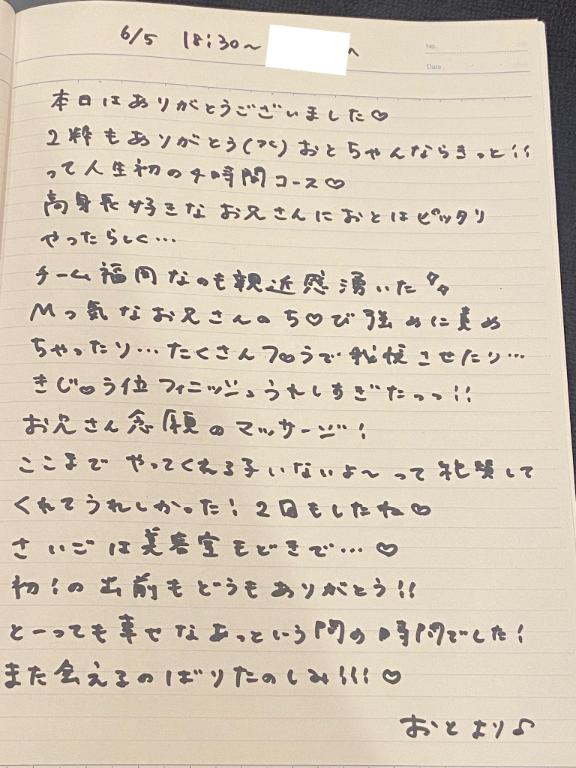 6/5 18:30〜
No.
Date
本日はありがとうございました♡
2粋もありがとう(つと) おとちゃんならきっと!!
って人生初の4時間コース♡
高身長好きなお兄さんにおとはピッタリ
やったらしく…
チーム福岡なのも親近感湧いた
Mっ気なお兄さんのち♡び強めに責め
ちゃったり…たくさんフ♡うで我慢させたり…
きじ♡う位フィニッシュうれしすぎたっっ!!
お兄さん念願のマッサージ!
ここまでやってくれる子いないよ〜って絶賛して
くれてうれしかった!2回もしたね♡
さいごは美容室もどきで…♡
初!の出前もどうもありがとう!!
とーっても幸せなあっという間の時間でした!
また会えるのばりたのしみ!!!♡
おとより♪